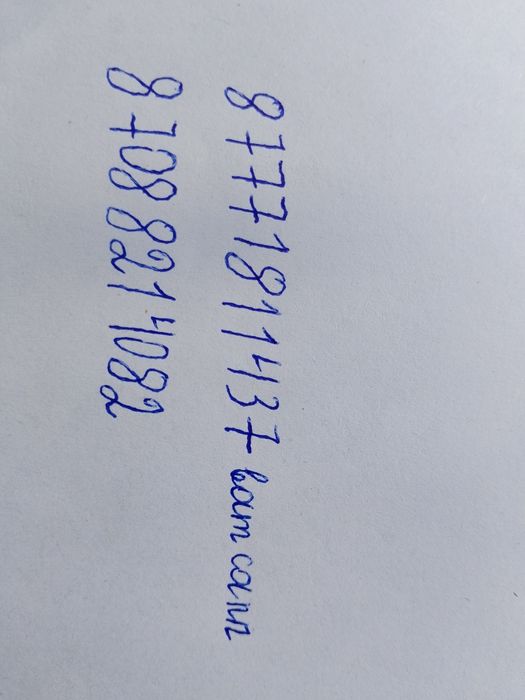 87771811437 ват сапп
87088214082